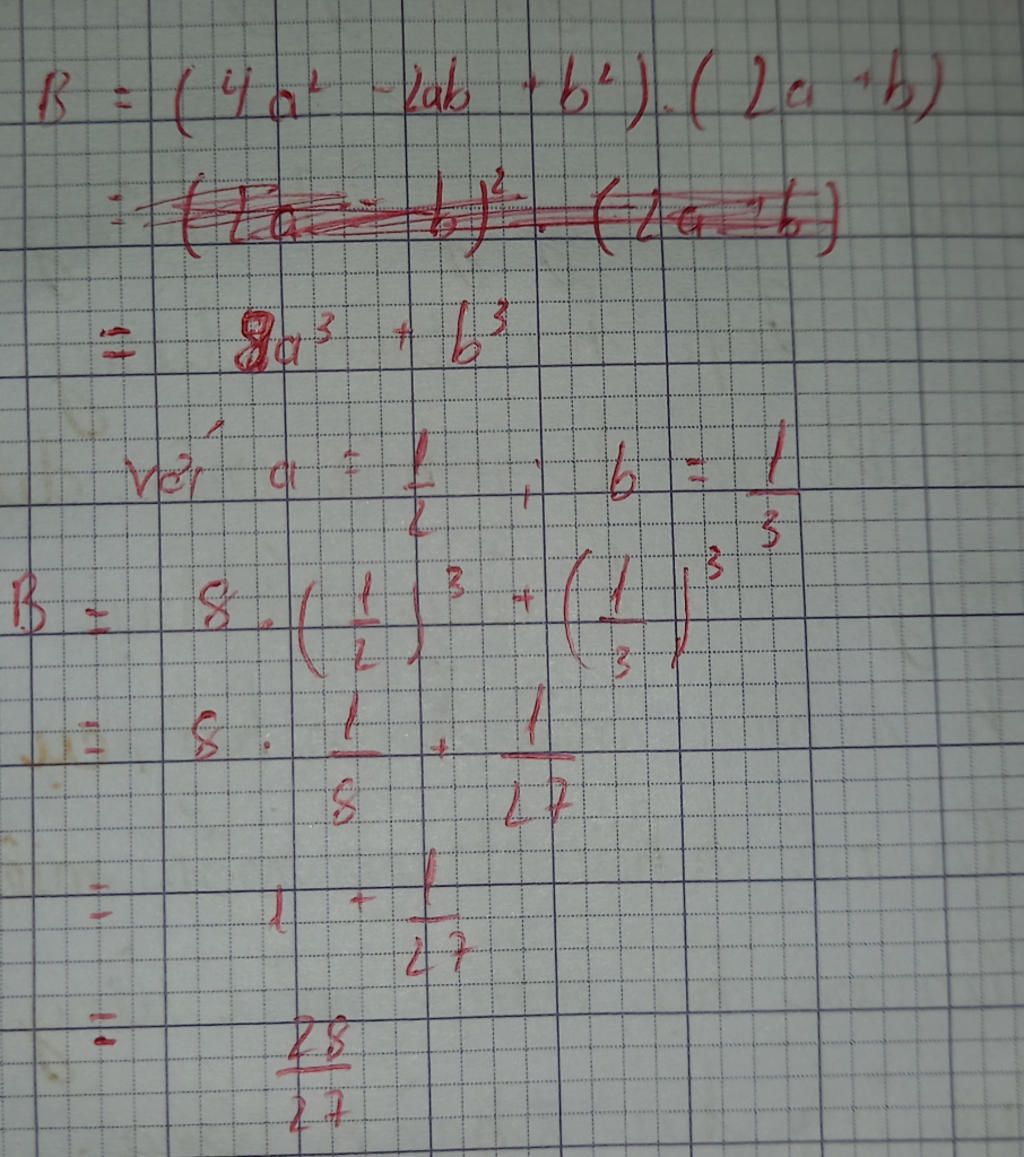 B = (4a² - 2ab + b²).(2a + b)
= (2a - b)² . (2a + b)
= 8a³ + b³
với a = 1/2 ; b = 1/3
B = 8 . (1/2)³ + (1/3)³
= 8 . 1/8 + 1/27
= 1 + 1/27
= 28/27